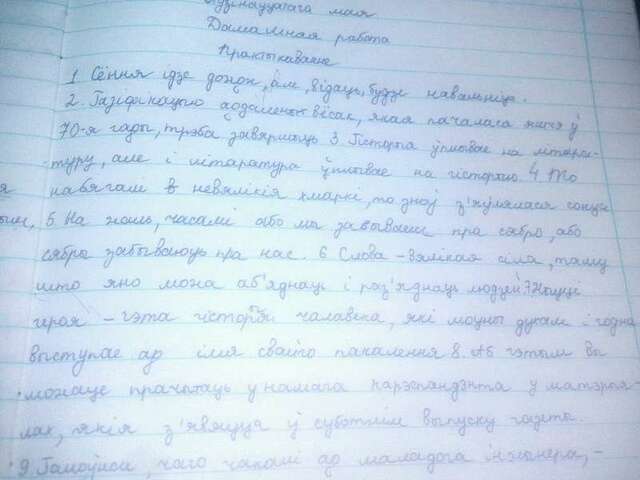 Адзінаццатага мая
Дамашняя работа
Практыкаванне
1 Сёння ідзе дождж, ім, відаць, будзе навальніца.
2. Газіфікацыю аддаленых вёсак, якая пачалася яшчэ ў
70-я гады, трэба завяршыць 3. Гісторыя ўплывае на літара-
туру, але і літаратура ўплывае на гісторыю. 4. То
набягалі невялікія хмаркі, то зноў з'яўлялася сонца
5 На жаль, часамі або мы забываем пра сяброў, або
сябры забываюць пра нас. 6 Слова - вялікая сіла, таму
што яно можа аб'яднаць і раз'яднаць людзей. 7 Жыццё
героя - гэта гісторыя чалавека, які моцны духам і годна
выступае ад імя свайго пакалення 8. Аб гэтым вы
можаце прачытаць у нашага карэспандэнта ў матэрыя-
лах, якія з'явяцца ў суботнім выпуску газеты.
9. Галоўнае, чаго чакалі ад маладога інжынера, -